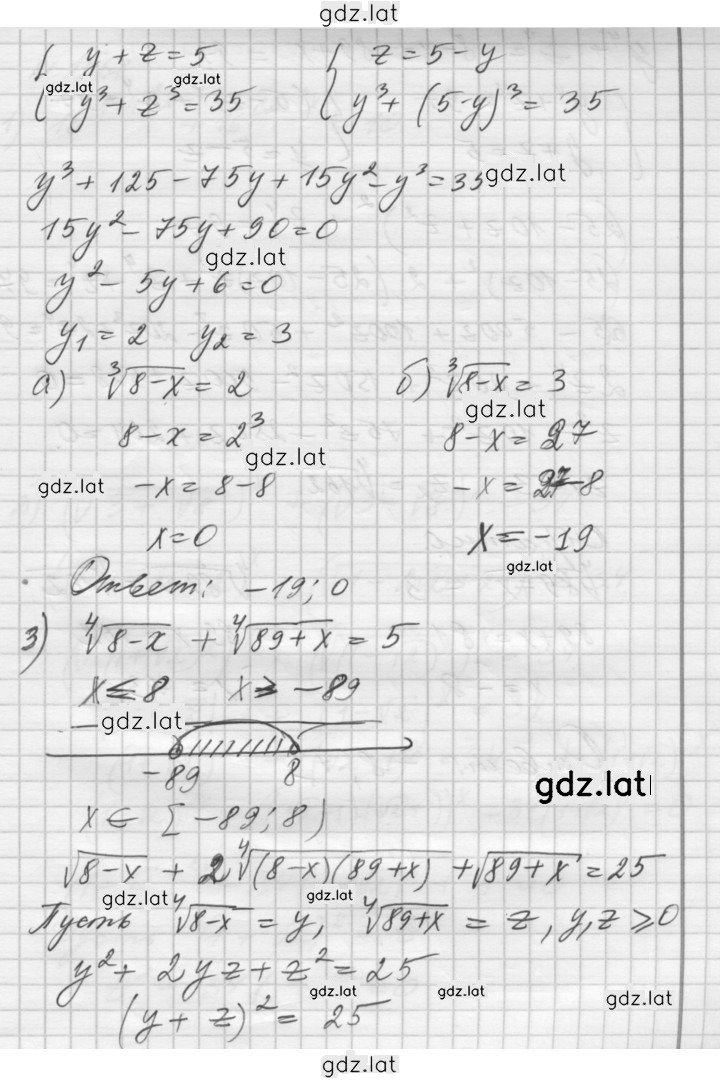 gdz.lat
{ y + z = 5 { z = 5 - y
gdz.lat gdz.lat
{ y³ + z³ = 35 { y³ + (5-y)³ = 35
y³ + 125 - 75y + 15y² - y³ = 35 gdz.lat
15y² - 75y + 90 = 0
gdz.lat
y² - 5y + 6 = 0
y₁ = 2 y₂ = 3
а) ∛(8-x) = 2 б) ∛(8-x) = 3
gdz.lat
8 - x = 2³ 8 - x = 27
gdz.lat
gdz.lat -x = 8 - 8 -x = 27 - 8
x = 0 x = -19
gdz.lat
Ответ: -19; 0
3) ∜(8-x) + ∜(89+x) = 5
x ≤ 8 x ≥ -89
gdz.lat
-89 8
gdz.lat
x ∈ [-89; 8)
√(8-x) + 2∜((8-x)(89+x)) + √(89+x) = 25
gdz.lat gdz.lat
Пусть ∜(8-x) = y, ∜(89+x) = z, y, z ≥ 0
y² + 2yz + z² = 25
gdz.lat gdz.lat gdz.lat
(y + z)² = 25
gdz.lat